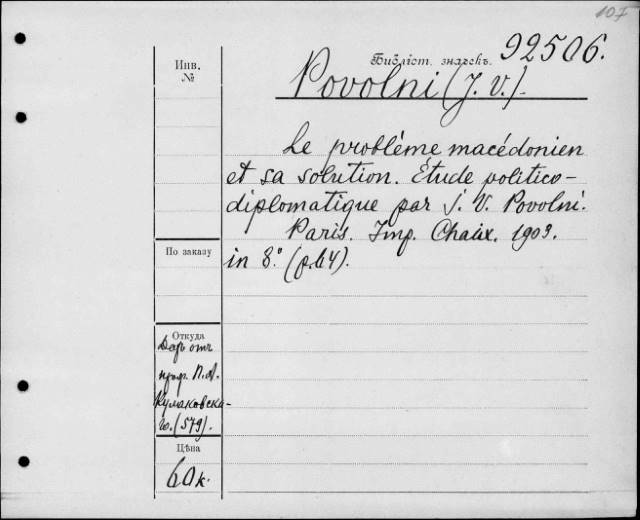 107
92506.
Библіот. значекъ.
Povolni (J. V.).
Инв.
№
Le problème macédonien
et sa solution. Étude politico-
diplomatique par J. V. Povolni.
Paris. Imp. Chaix. 1903.
in 8.° (p. 64).
По заказу
Откуда
Даръ отъ
проф. П. А.
Кулаковска-
го. (579).
Цѣна
60 к.